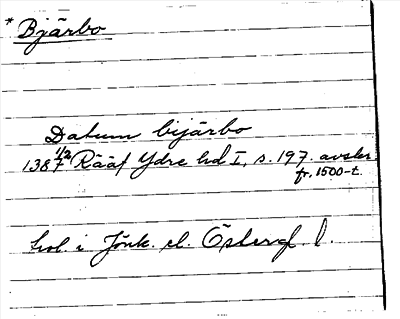 * Bjärbo
Datum bijärbo
1387 1/2 Rääf Ydre hd I, s. 197. avskr.
fr. 1500-t.
hol. i Jönk. el. Östergl.